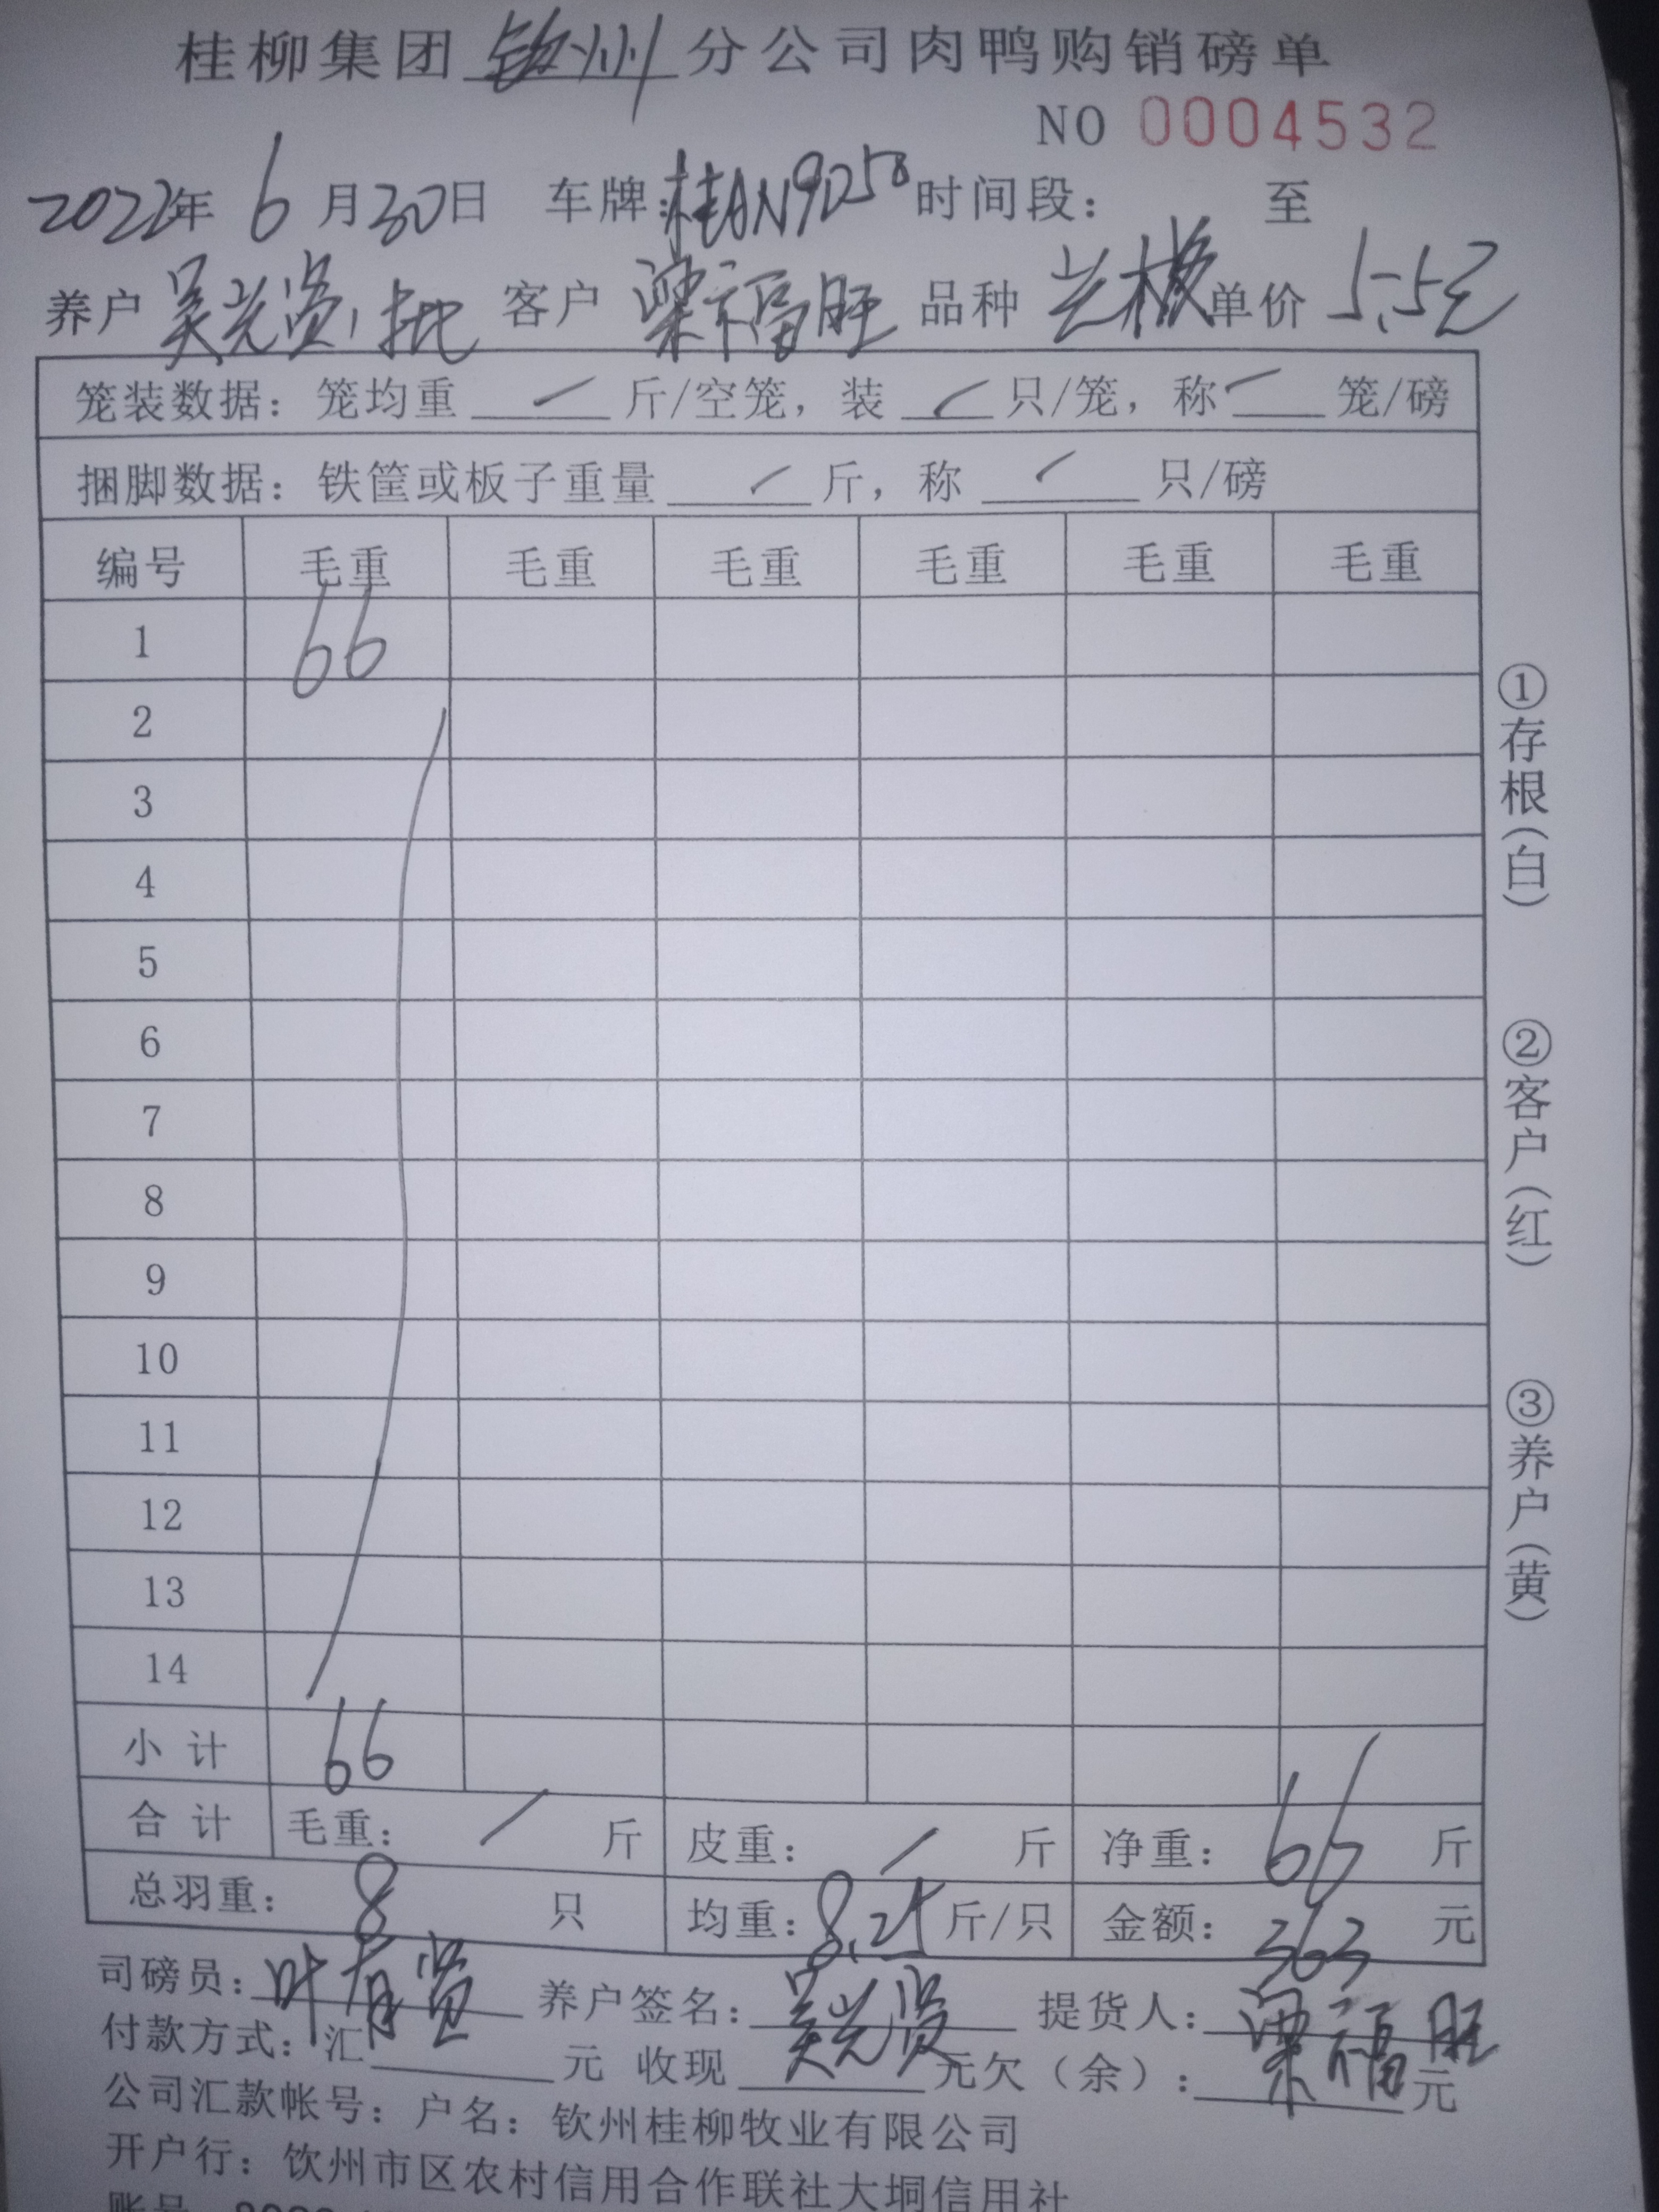 桂柳集团 钦州 分公司肉鸭购销磅单
NO 0004532
2022年 6 月30日 车牌:桂AN9D58 时间段: 至
养户 吴光贤1批 客户 梁福旺 品种 单价 5.5元
笼装数据: 笼均重 / 斤/空笼, 装 / 只/笼, 称 / 笼/磅
捆脚数据: 铁筐或板子重量 / 斤, 称 / 只/磅
编号 毛重 毛重 毛重 毛重 毛重 毛重
1 66
2
3
4
5
6
7
8
9
10
11
12
13
14
小计 66
合计 毛重: / 斤 皮重: / 斤 净重: 66 斤
总羽重: 8 只 均重: 8.25 斤/只 金额: 363 元
司磅员: 叶有 养户签名: 吴光贤 提货人: 梁福旺
付款方式: 汇 元 收现 元欠(余): 元
公司汇款帐号: 户名: 钦州桂柳牧业有限公司
开户行: 钦州市区农村信用合作联社大垌信用社
账号
①存根(白)
②客户(红)
③养户(黄)